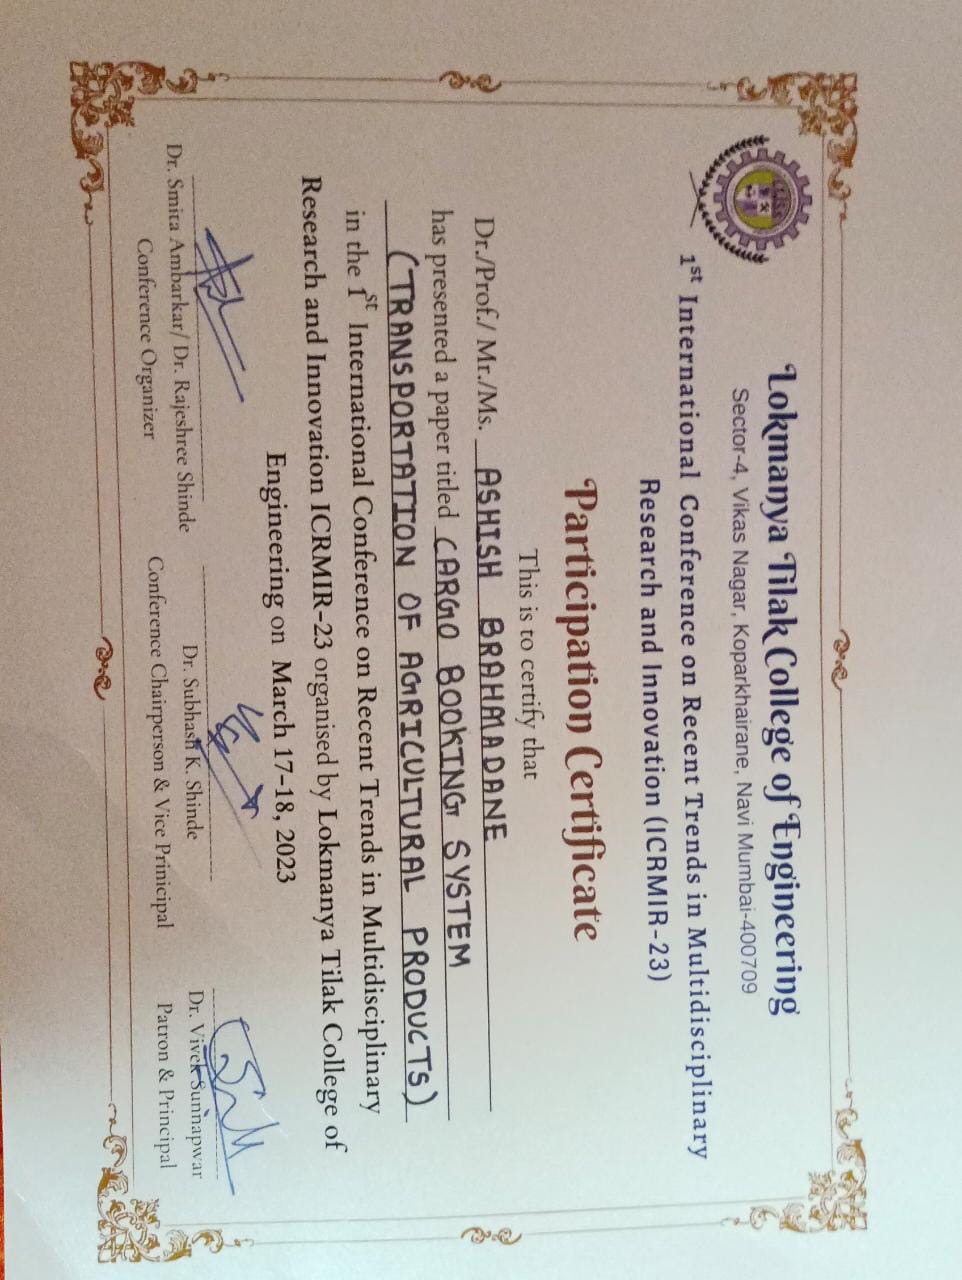 Lokmanya Tilak College of Engineering
Sector-4, Vikas Nagar, Koparkhairane, Navi Mumbai-400709
1st International Conference on Recent Trends in Multidisciplinary
Research and Innovation (ICRMIR-23)
Participation Certificate
This is to certify that
Dr./Prof./ Mr./Ms. ASHISH BRAHMADANE
has presented a paper titled CARGO BOOKING SYSTEM
(TRANSPORTATION OF AGRICULTURAL PRODUCTS)
in the 1st International Conference on Recent Trends in Multidisciplinary
Research and Innovation ICRMIR-23 organised by Lokmanya Tilak College of
Engineering on March 17-18, 2023
Dr. Smita Ambarkar/ Dr. Rajeshree Shinde
Conference Organizer
Dr. Subhash K. Shinde
Conference Chairperson & Vice Prinicipal
Dr. Vivek Sunnapwar
Patron & Principal